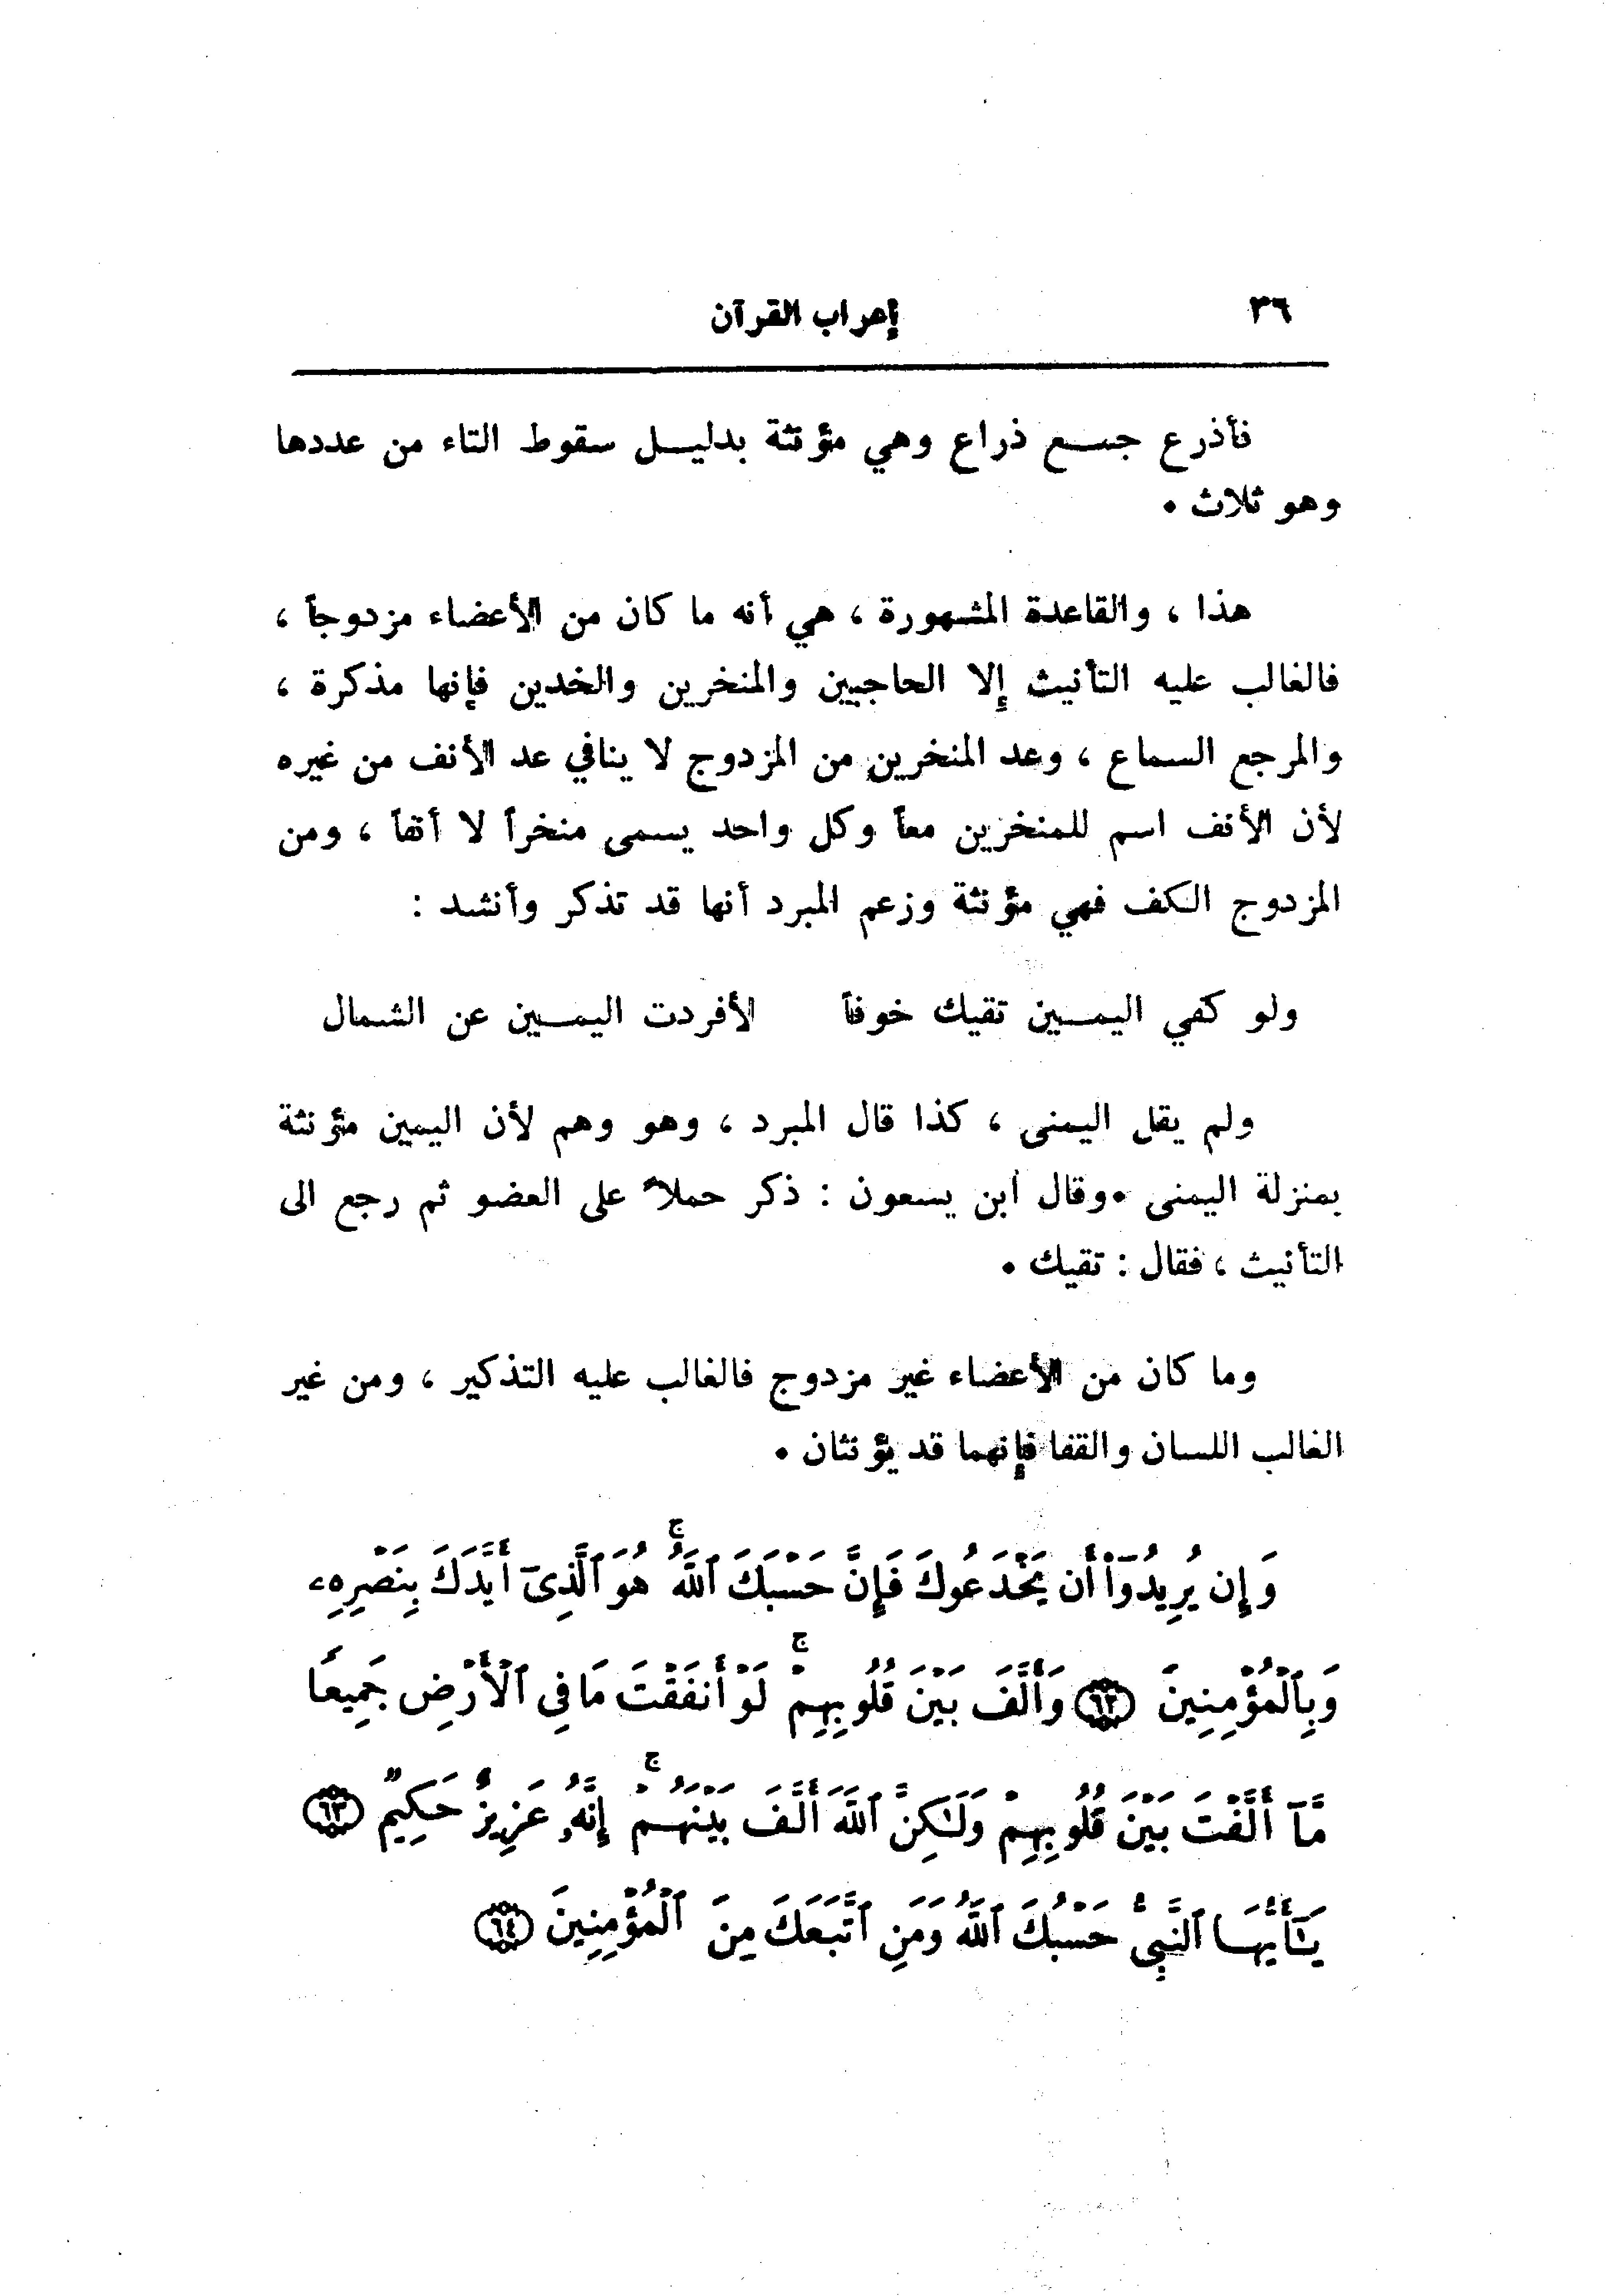 ٣٦
إعراب القرآن
فأذرع جمع ذراع وهي مؤنثة بدليل سقوط التاء من عددها
وهو ثلاث .
هذا ، والقاعدة المشهورة ، هي أنه ما كان من الأعضاء مزدوجاً ،
فالغالب عليه التأنيث إلا الحاجبين والمنخرين والخدين فإنها مذكرة ،
والمرجع السماع ، وعد المنخرين من المزدوج لا ينافي عد الأنف من غيره
لأن الأنف اسم للمنخرين معاً وكل واحد يسمى منخراً لا أنفاً ، ومن
المزدوج الكف فهي مؤنثة وزعم المبرد أنها قد تذكر وأنشد :
ولو كفي اليمين تقيك خوفاً لأفردت اليمين عن الشمال
ولم يقل اليمنى ، كذا قال المبرد ، وهو وهم لأن اليمين مؤنثة
بمنزلة اليمنى . وقال ابن يسعون : ذكر حملاً على العضو ثم رجع الى
التأنيث ، فقال : تقيك .
وما كان من الأعضاء غير مزدوج فالغالب عليه التذكير ، ومن غير
الغالب اللسان والقفا فإنهما قد يؤنثان .
وَإِن يُرِيدُوٓا۟ أَن يَخْدَعُوكَ فَإِنَّ حَسْبَكَ ٱللَّهُ ۚ هُوَ ٱلَّذِىٓ أَيَّدَكَ بِنَصْرِهِۦ
وَبِٱلْمُؤْمِنِينَ ﴿٦٢﴾ وَأَلَّفَ بَيْنَ قُلُوبِهِمْ ۚ لَوْ أَنفَقْتَ مَا فِى ٱلْأَرْضِ جَمِيعًا
مَّآ أَلَّفْتَ بَيْنَ قُلُوبِهِمْ وَلَـٰكِنَّ ٱللَّهَ أَلَّفَ بَيْنَهُمْ ۚ إِنَّهُۥ عَزِيزٌ حَكِيمٌ ﴿٦٣﴾
يَـٰٓأَيُّهَا ٱلنَّبِىُّ حَسْبُكَ ٱللَّهُ وَمَنِ ٱتَّبَعَكَ مِنَ ٱلْمُؤْمِنِينَ ﴿٦٤﴾